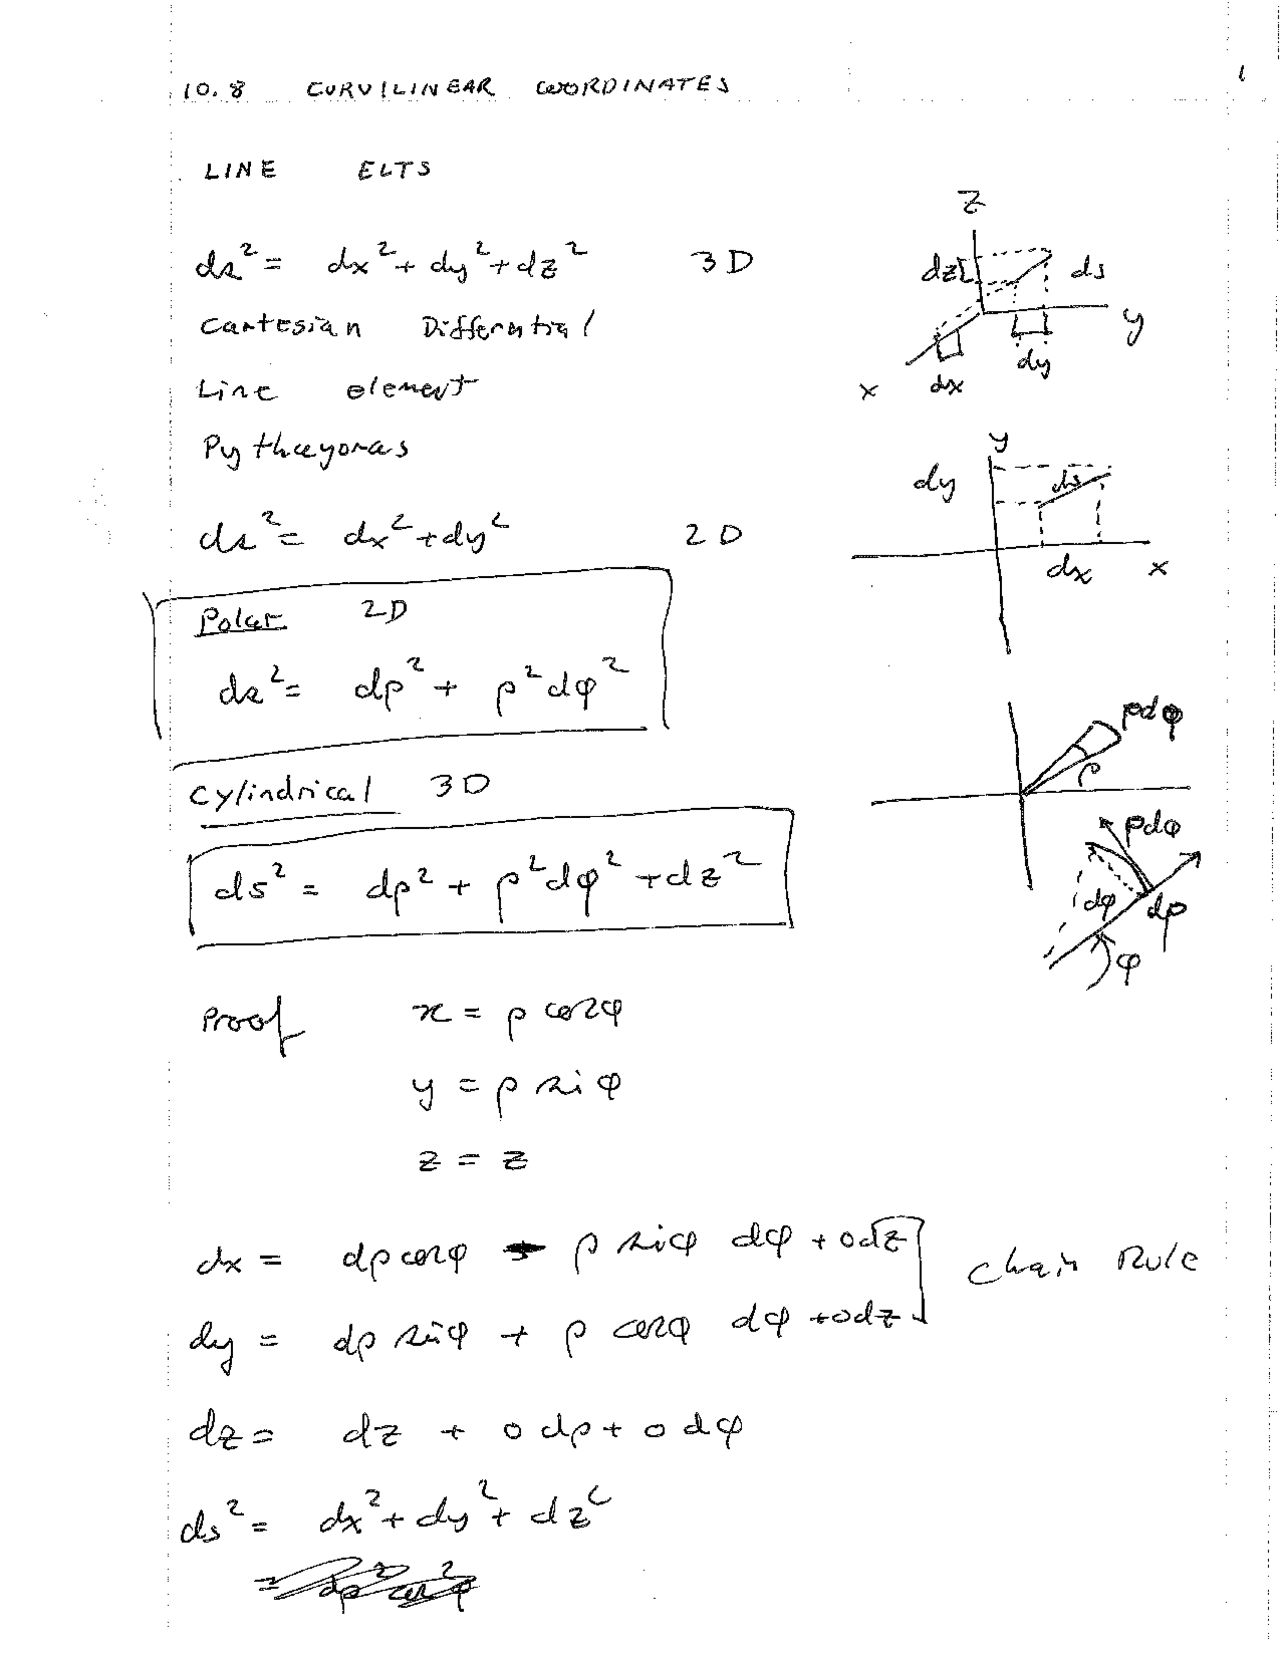 10.8 CURVILINEAR COORDINATES
1
LINE ELTS
ds² = dx² + dy² + dz² 3D
Cartesian Differential
Line element
Pythagoras
z
dz
ds
y
dy
x
dx
ds² = dx² + dy² 2D
y
dy
ds
dx
x
Polar 2D
ds² = dρ² + ρ²dφ²
ρdφ
ρ
Cylindrical 3D
ds² = dρ² + ρ²dφ² + dz²
ρdφ
dφ
dρ
φ
Proof x = ρ cosφ
y = ρ sinφ
z = z
dx = dρ cosφ - ρ sinφ dφ + 0dz
dy = dρ sinφ + ρ cosφ dφ + 0dz
Chain Rule
dz = dz + 0 dρ + 0 dφ
ds² = dx² + dy² + dz²
= dρ² cos²φ